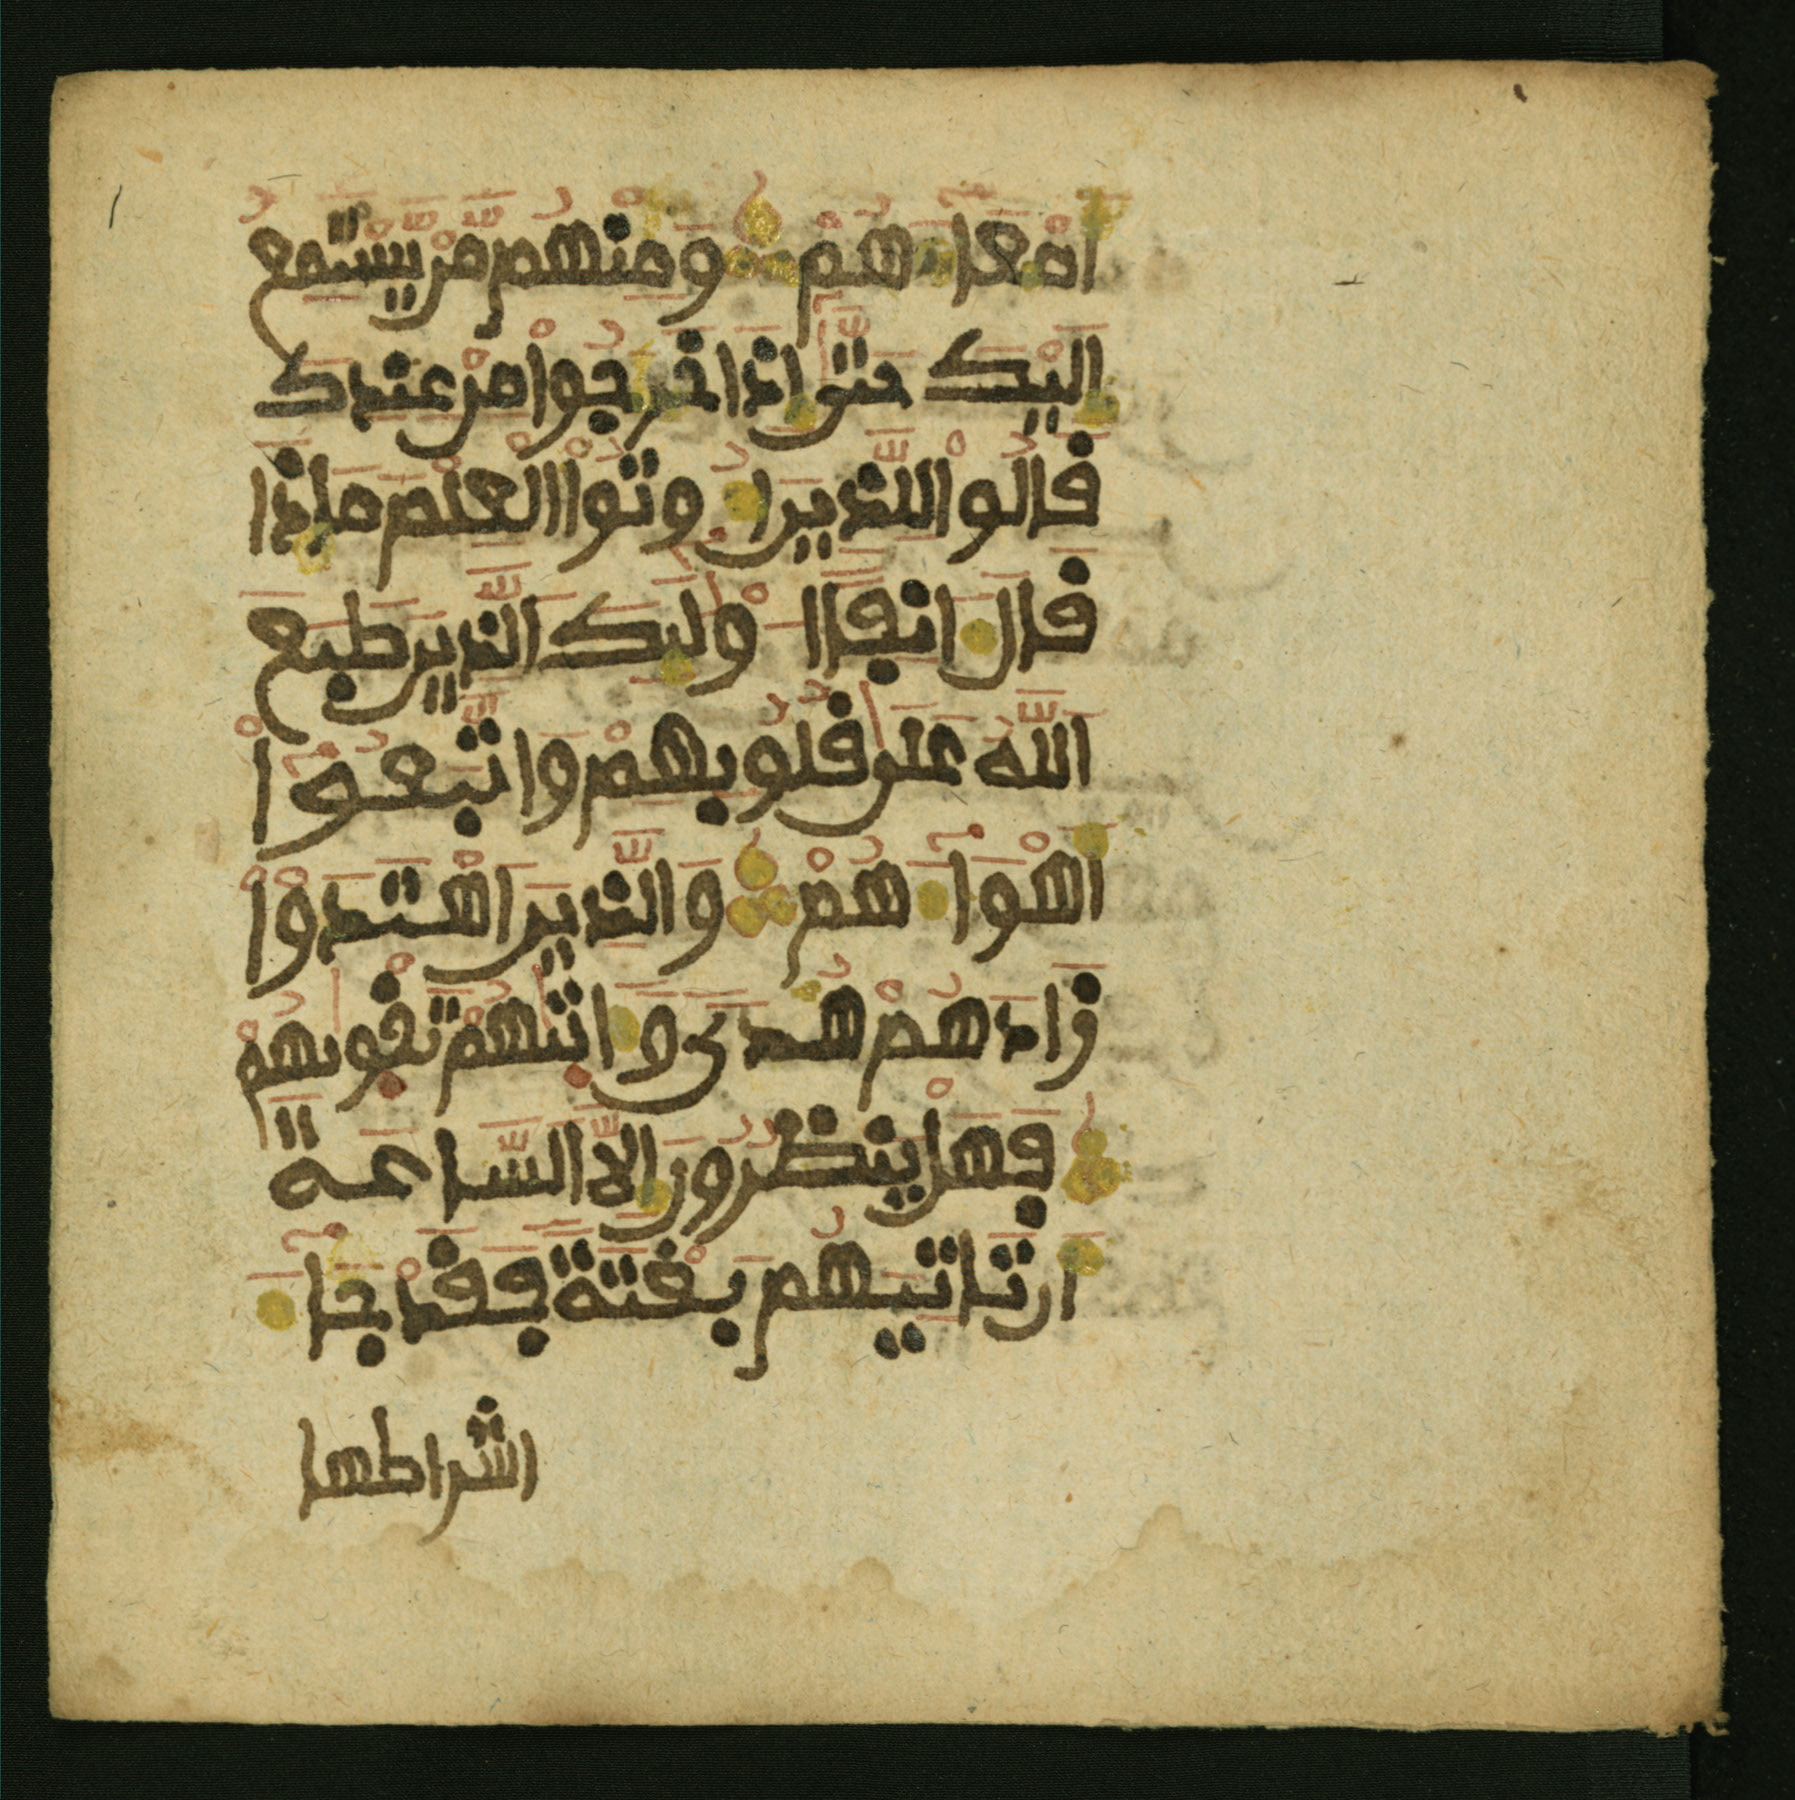 اَمْعَآءَهُمْ وَمِنْهُم مَّنْ يَّسْتَمِعُ
اِلَيْكَ حَتَّىٰ اِذَا خَرَجُواْ مِنْ عِندِكَ
قَالُواْ لِلَّذِينَ أُوتُواْ الْعِلْمَ مَاذَا
قَالَ ءَانِفًا اُوْلَٰئِكَ الَّذِينَ طَبَعَ
اَللَّهُ عَلَىٰ قُلُوبِهِمْ وَاتَّبَعُوٓاْ
أَهْوَآءَهُمْ وَالَّذِينَ اَهْتَدَوْاْ
زَادَهُمْ هُدًى وَءَاتَىٰهُمْ تَقْوَىٰهُمْ
فَهَلْ يَنظُرُونَ إِلَّا اَلسَّاعَةَ
أَن تَاتِيَهُم بَغْتَةً فَقَدْ جَآءَ
اشراطها